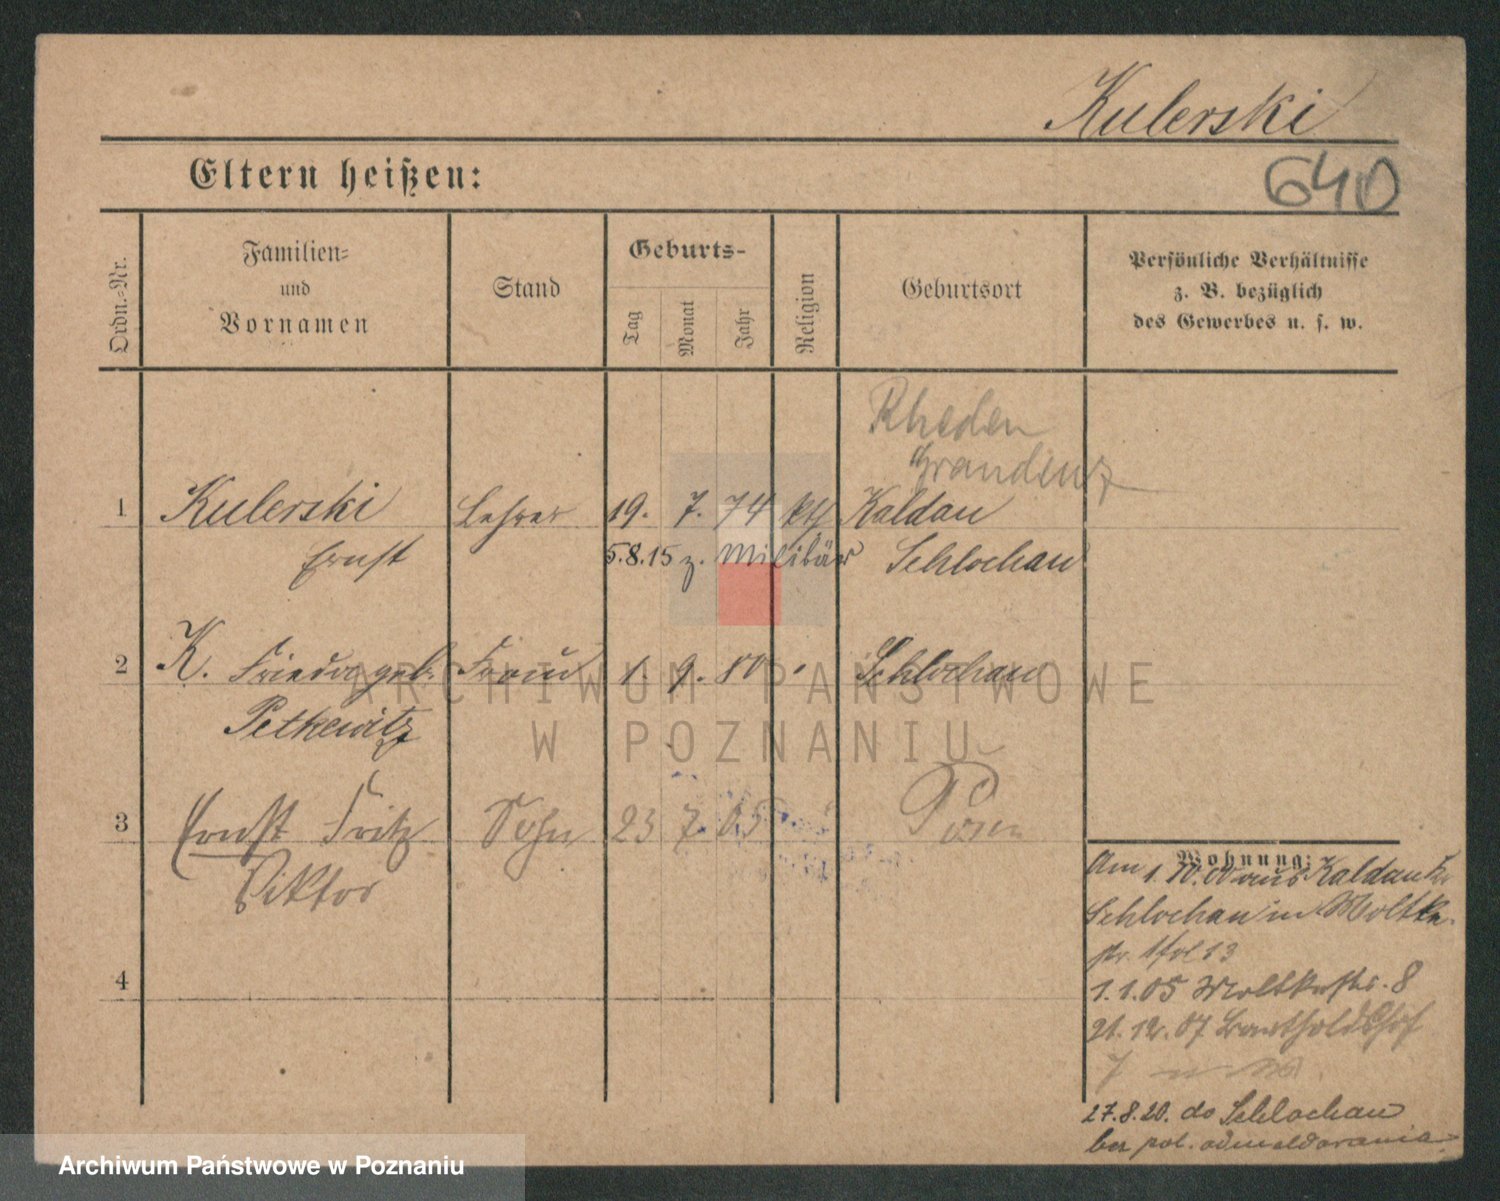 Kulerski
Eltern heißen:
640
Ordn.-Nr.
Familien-
und
Vornamen
Stand
Geburts-
Tag
Monat
Jahr
Religion
Geburtsort
Persönliche Verhältnisse
z. B. bezüglich
des Gewerbes u. s. w.
Rheden
Graudenz
1 Kulerski Lehrer 19. 7. 74 kth Kaldau
Ernst 5.8.15 z. Militär Schlochau
2 K. Frieda geb. Frau 1. 9. 80 " Schlochau
Petkewitz
3 Ernst Fritz Sohn 23 7 05 Posen
Viktor
4
Wohnung:
Am 1.10.00 aus Kaldau Kr
Schlochau in Moltke
str. 13
1.1.05 Moltkestr. 8
21.12.07 Bartholdshof
7
27.8.20. do Schlochau
bez pol. odmeldowania
ARCHIWUM PAŃSTWOWE
W POZNANIU
Archiwum Państwowe w Poznaniu